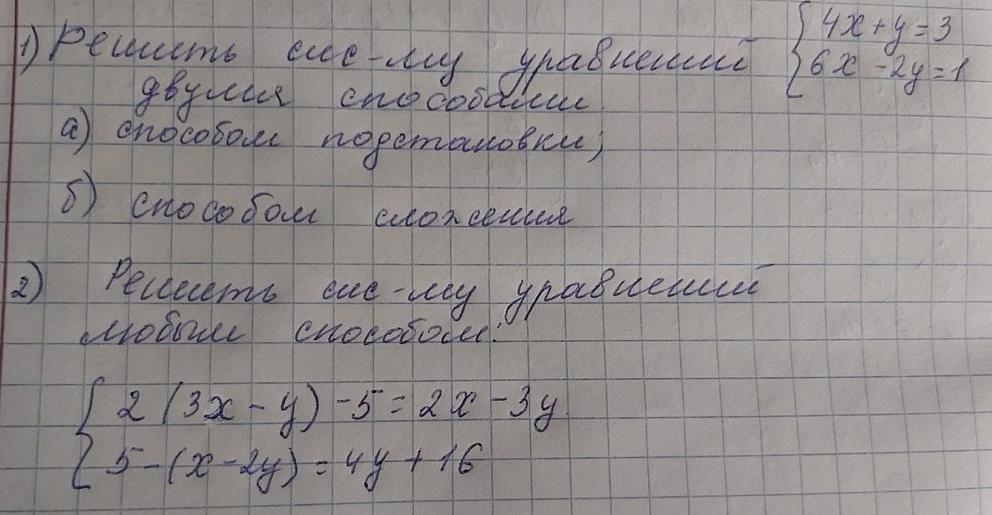 1) Решить сис-му уравнений { 4x + y = 3
6x - 2y = 1
двумя способами.
а) способом подстановки;
б) способом сложения
2) Решить сис-му уравнений
любым способом:
{ 2(3x - y) - 5 = 2x - 3y
5 - (x - 2y) = 4y + 16